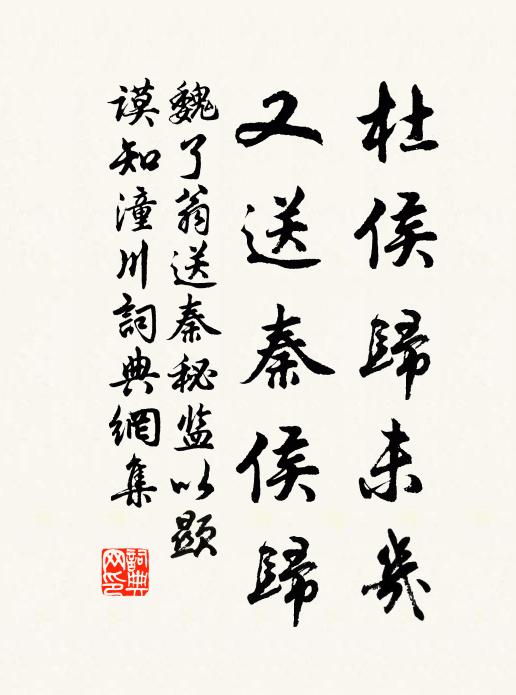 杜侯歸未幾
又送秦侯歸
魏了翁送秦秘监以顕
謨知潼川詞典網集
詞典网印